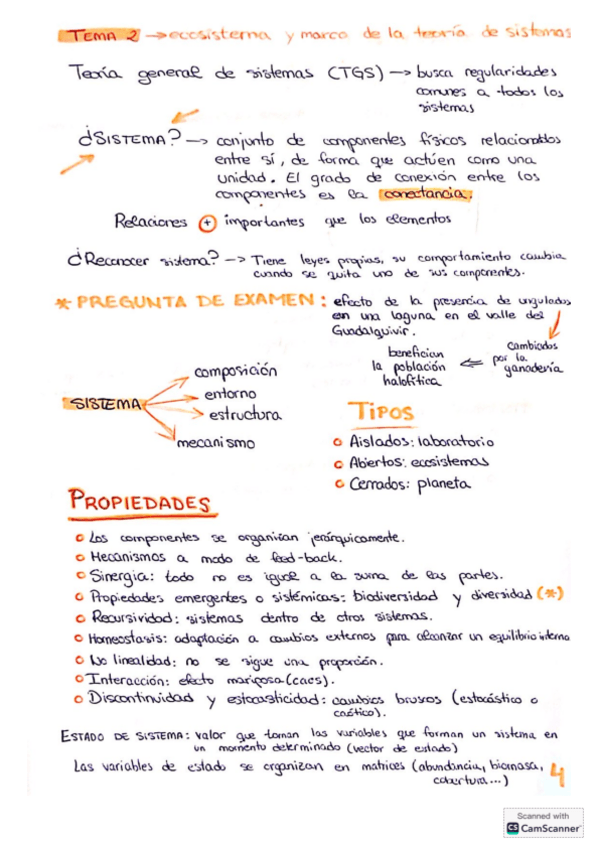 TEMA 2 → ecosistema y marco de la teoría de sistemas
Teoría general de sistemas (TGS) → busca regularidades
comunes a todos los
sistemas
¿SISTEMA? → conjunto de componentes físicos relacionados
entre sí, de forma que actúen como una
unidad. El grado de conexión entre los
componentes es la conectancia.
Relaciones + importantes que los elementos
¿Reconocer sistema? → Tiene leyes propias, su comportamiento cambia
cuando se quita uno de sus componentes.
* PREGUNTA DE EXAMEN: efecto de la presencia de ungulados
en una laguna en el valle del
Guadalquivir.
cambiados
por la
ganadería
benefician
la población
halofítica
SISTEMA
composición
entorno
estructura
mecanismo
TIPOS
Aislados: laboratorio
Abiertos: ecosistemas
Cerrados: planeta
PROPIEDADES
Los componentes se organizan jerárquicamente.
Mecanismos a modo de feed-back.
Sinergia: todo no es igual a la suma de las partes.
Propiedades emergentes o sistémicas: biodiversidad y diversidad (*)
Recursividad: sistemas dentro de otros sistemas.
Homeostasis: adaptación a cambios externos para alcanzar un equilibrio interno
No linealidad: no se sigue una proporción.
Interacción: efecto mariposa (caos).
Discontinuidad y estocasticidad: cambios bruscos (estocástico o
caótico).
ESTADO DE SISTEMA: valor que toman las variables que forman un sistema en
un momento determinado (vector de estado)
Las variables de estado se organizan en matrices (abundancia, biomasa,
cobertura...)
4
Scanned with
CS CamScanner